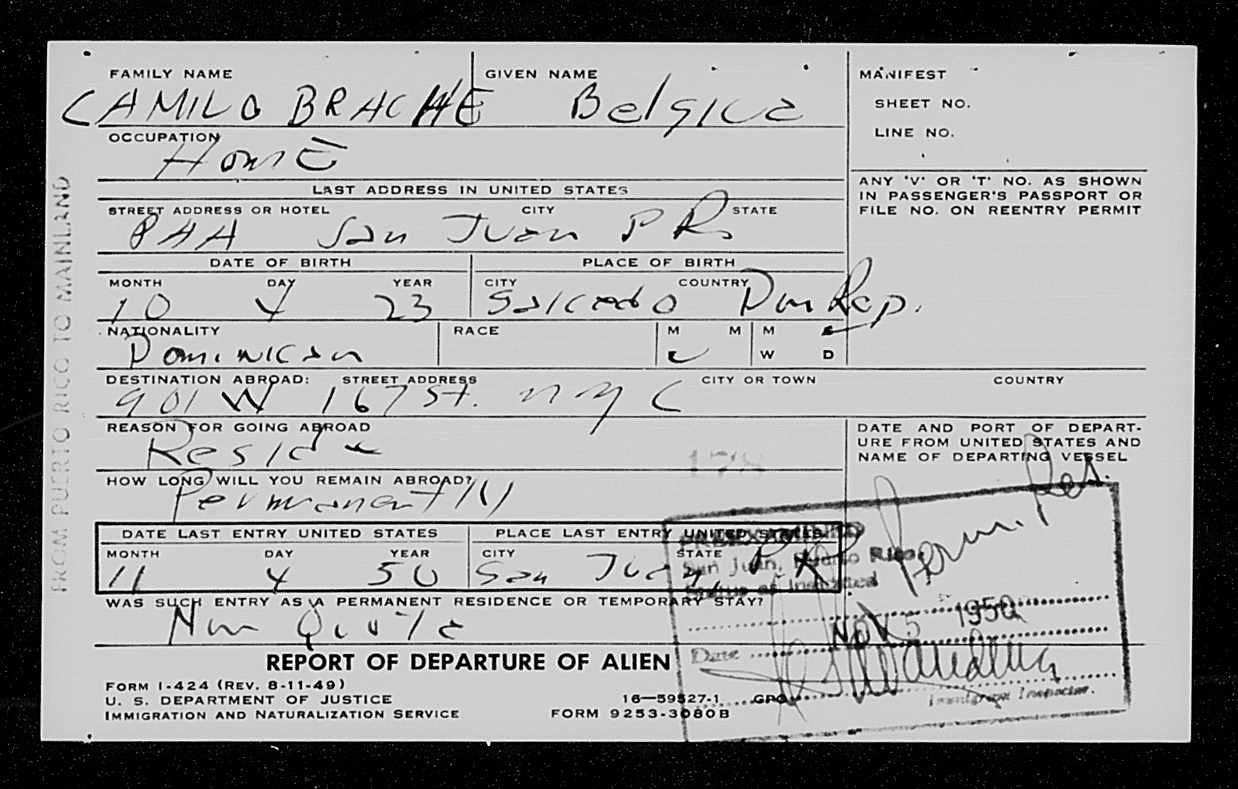 FAMILY NAME GIVEN NAME MANIFEST
CAMILO BRACHE Belgica SHEET NO.
LINE NO.
OCCUPATION
Home
LAST ADDRESS IN UNITED STATES
ANY 'V' OR 'T' NO. AS SHOWN
IN PASSENGER'S PASSPORT OR
FILE NO. ON REENTRY PERMIT
STREET ADDRESS OR HOTEL CITY STATE
PAA San Juan P R
DATE OF BIRTH PLACE OF BIRTH
MONTH DAY YEAR CITY COUNTRY
10 4 23 Salcedo Dom Rep.
NATIONALITY RACE M M M
Dominican W D
DESTINATION ABROAD: STREET ADDRESS CITY OR TOWN COUNTRY
901 W 167 St. NYC
REASON FOR GOING ABROAD
Reside
DATE AND PORT OF DEPART-
URE FROM UNITED STATES AND
NAME OF DEPARTING VESSEL
178
HOW LONG WILL YOU REMAIN ABROAD?
Permanently
Perm. Res.
DATE LAST ENTRY UNITED STATES PLACE LAST ENTRY UNITED STATES
MONTH DAY YEAR CITY STATE
11 4 50 San Juan P R
PREEXAMINED
San Juan, Puerto Rico
Status as Indicated
WAS SUCH ENTRY AS A PERMANENT RESIDENCE OR TEMPORARY STAY?
Non Quota
NOV 5 1950
Date
Immigrant Inspector.
REPORT OF DEPARTURE OF ALIEN
FORM I-424 (REV. 8-11-49)
U. S. DEPARTMENT OF JUSTICE 16—59527-1 GPO
IMMIGRATION AND NATURALIZATION SERVICE FORM 9253-3080B
FROM PUERTO RICO TO MAINLAND